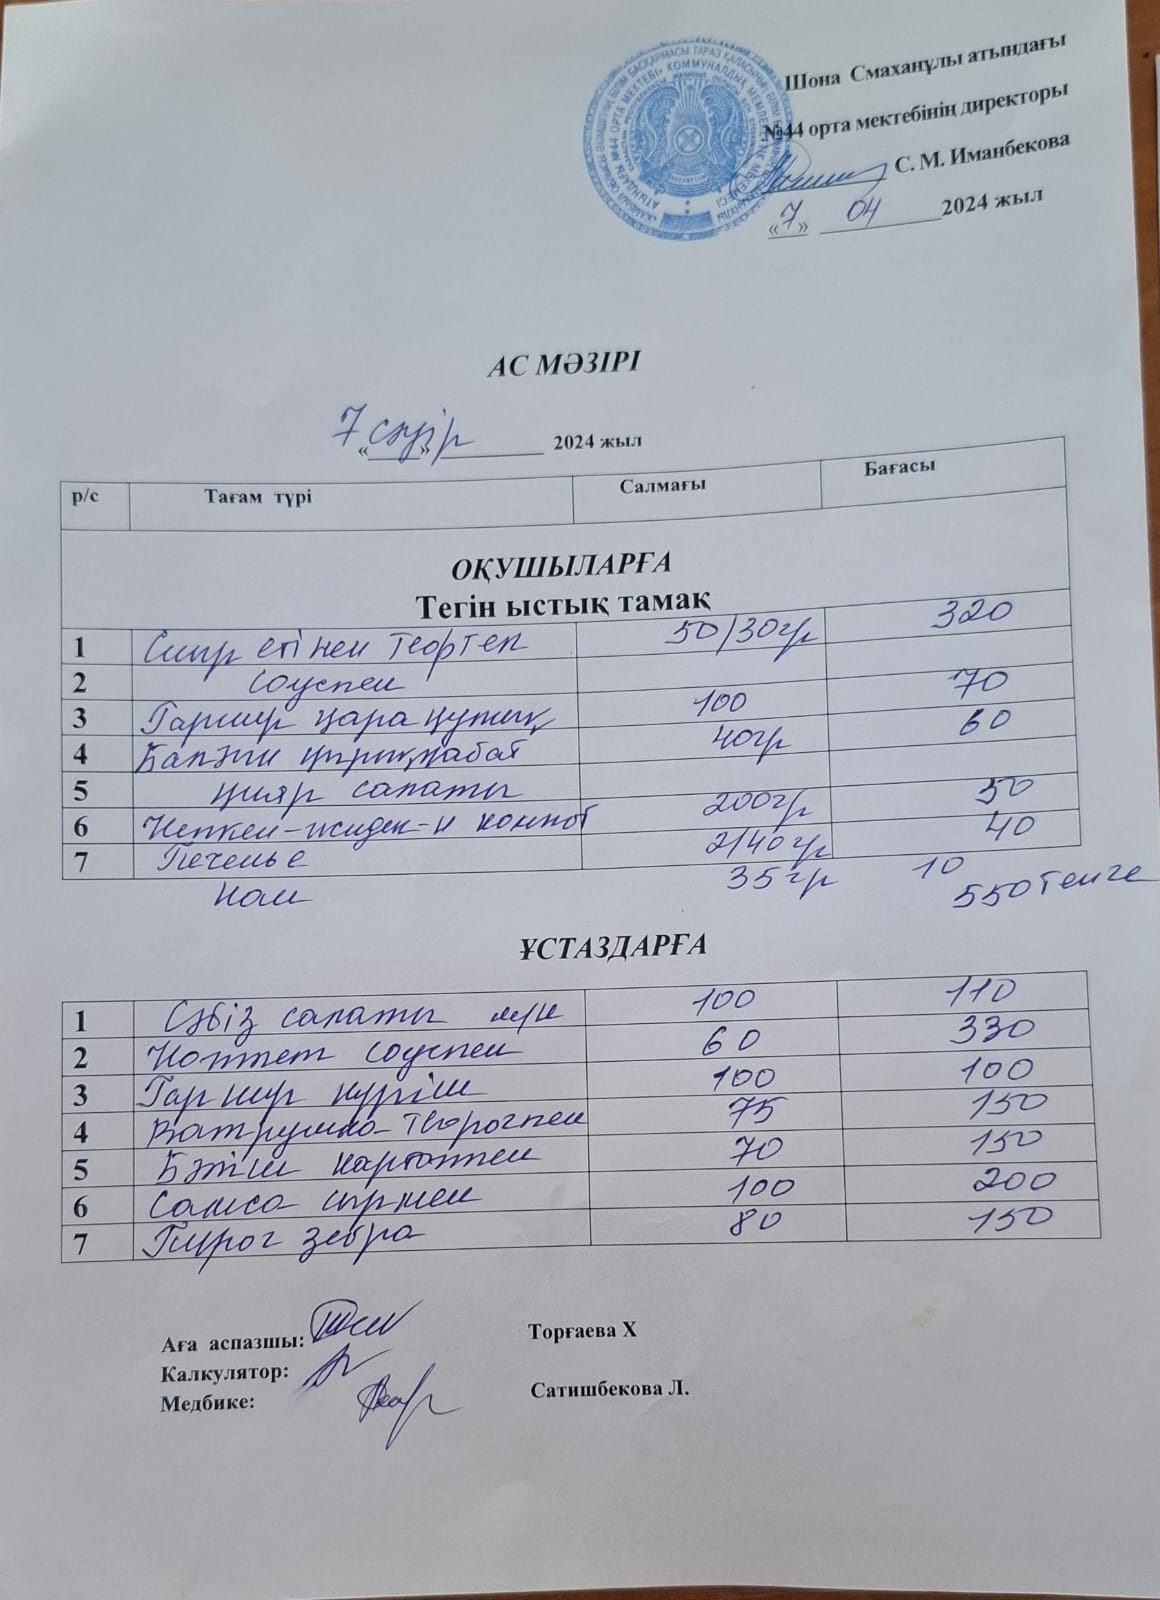 Шона Смаханұлы атындағы
№44 орта мектебінің директоры
С. М. Иманбекова
«7» 04 2024 жыл
АС МӘЗІРІ
«7» сәуір 2024 жыл
р/с Тағам түрі Салмағы Бағасы
ОҚУШЫЛАРҒА
Тегін ыстық тамақ
1 Сиыр етінен тефтел 50/30гр 320
2 соуспен
3 Гарнир қара құмық 100 70
4 Балғын қырыққабат 40гр 60
5 қияр салаты
6 Кепкен-жидек-н компот 200гр 50
7 Печенье 2/40гр 40
нан 35гр 10
550тенге
ҰСТАЗДАРҒА
1 Сәбіз салаты м/н 100 110
2 Котлет соуспен 60 330
3 Гарнир күріш 100 100
4 Ватрушка творогпен 75 150
5 Бәтіш картоппен 70 150
6 Самса сырмен 100 200
7 Пирог зебра 80 150
Аға аспазшы: Торғаева Х
Калкулятор:
Медбике: Сатишбекова Л.